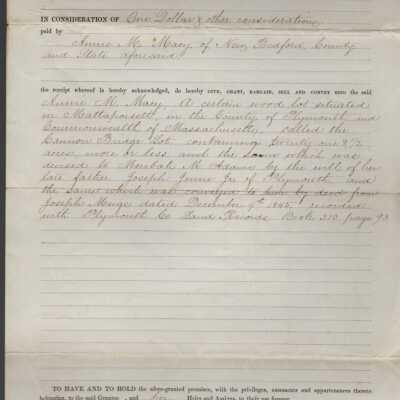 IN CONSIDERATION OF One Dollar & other considerations
paid by
Annie M. Macy, of New Bedford, County
and State aforesaid
the receipt whereof is hereby acknowledged, do hereby GIVE, GRANT, BARGAIN, SELL AND CONVEY unto the said
Annie M. Macy A certain wood lot situated
in Mattapoisett, in the County of Plymouth and
Commonwealth of Massachusetts, called the
Cannon Bridge Lot containing twenty one & 1/2
acres, more or less and the same which was
devised to M. Adams by the will of her
late father Joseph Jr. of Plymouth and
the same which was conveyed to him by deed from
Joseph Meigs dated December 9th 1842, recorded
with Plymouth Co Land Records Book 210, page 93
TO HAVE AND TO HOLD the above-granted premises, with the privileges, easements and appurtenances thereto
belonging, to the said Grantee, and her Heirs and Assigns, to their use forever.